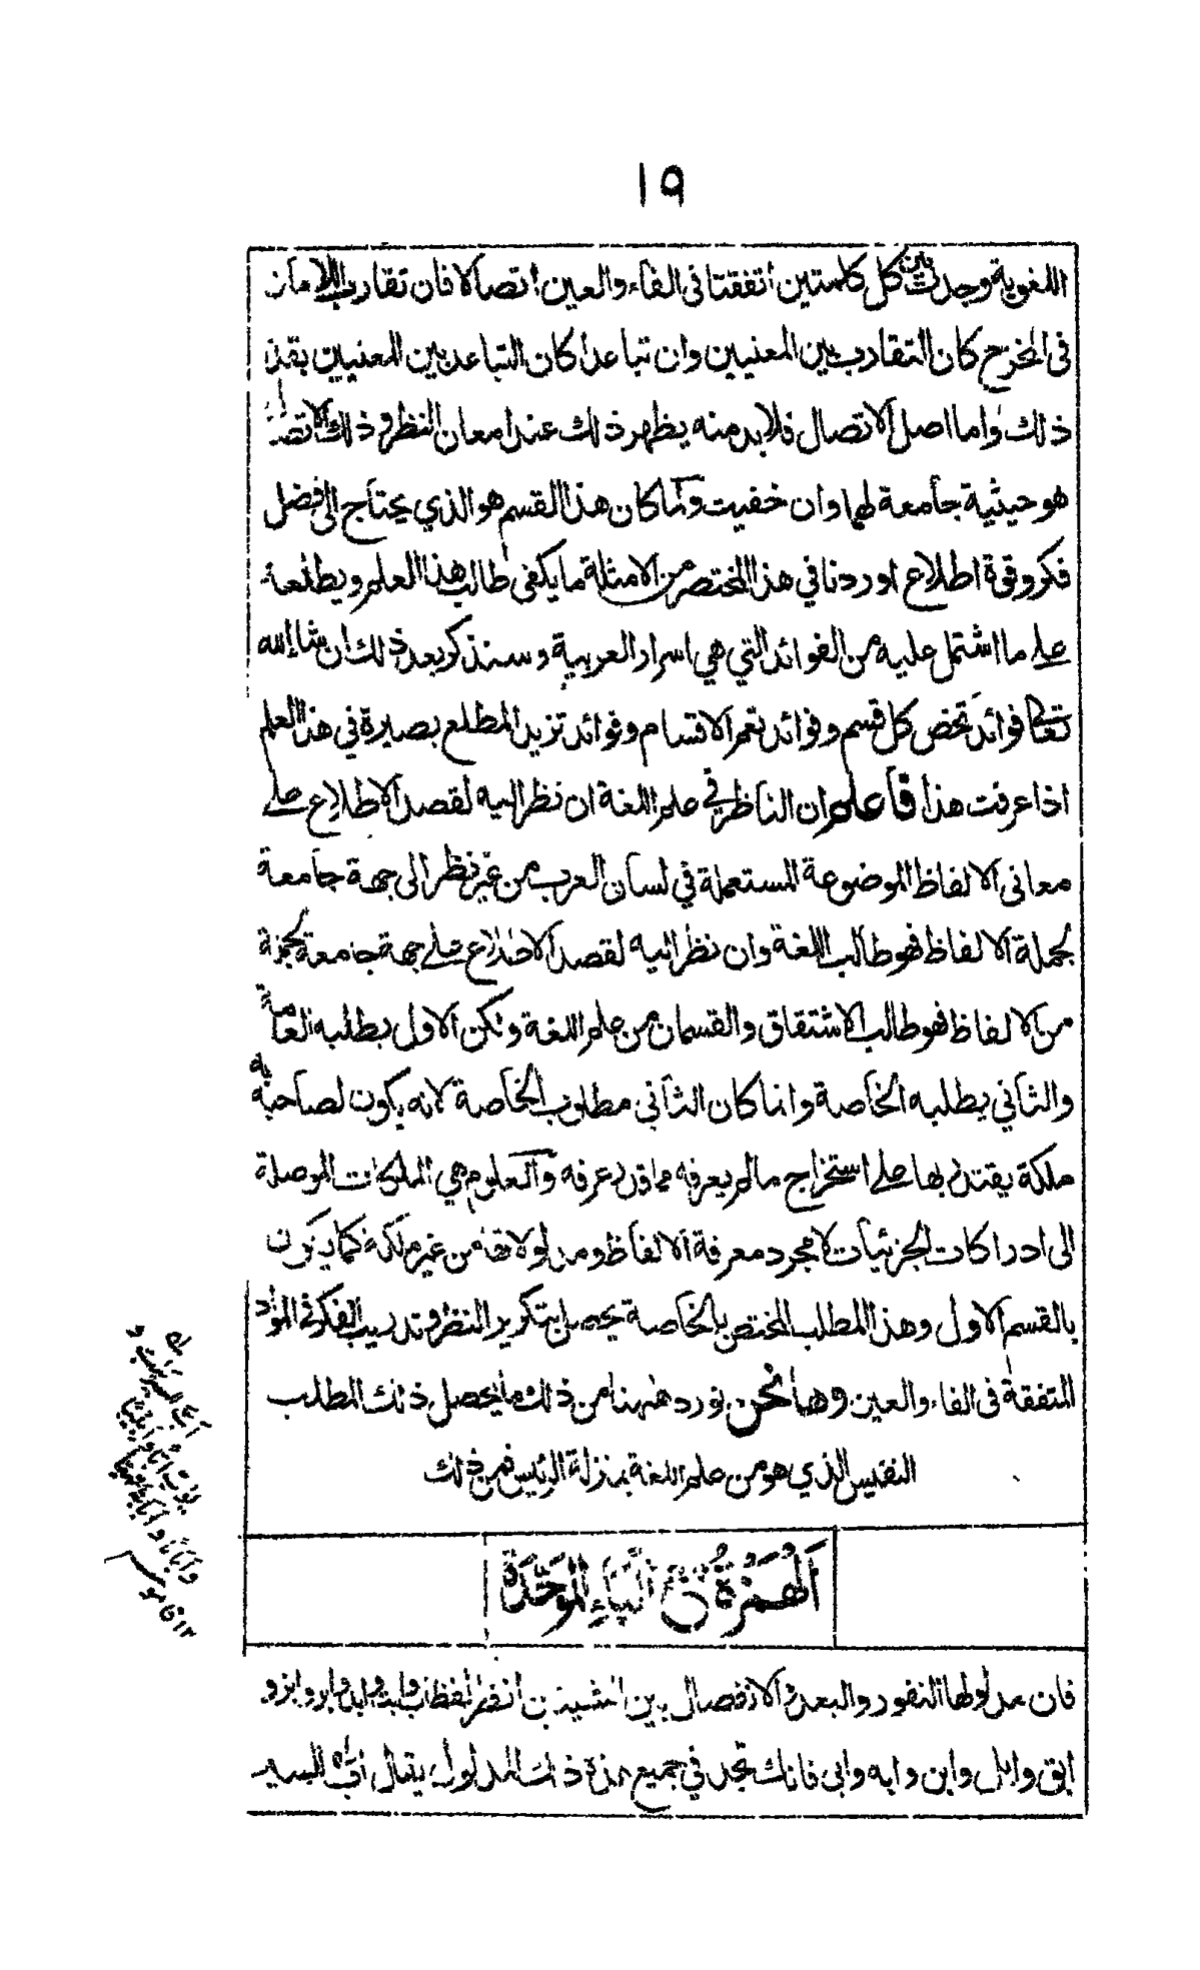 ١٩
اللغوية وجدت بين كل كلمتين اتفقتا في الفاء والعين اتصالا فان تقارب اللامان
في المخرج كان التقارب بين المعنيين وان تباعدا كان التباعد بين المعنيين بقدر
ذلك واما اصل الاتصال فلا بد منه يظهر ذلك عند امعان النظر وذلك الاتصال
هو حيثية جامعة لهما وان خفيت ولما كان هذا القسم هو الذي يحتاج الى فضل
فكر وقوة اطلاع اوردنا في هذا المختصر من الامثلة ما يكفى طالب هذا العلم ويطلعه
على ما اشتمل عليه من الفوائد التي هي اسرار العربية وسنذكر بعد ذلك ان شاء الله
تعالى فوائد تخص كل قسم وفوائد تعم الاقسام وفوائد تزيد المطلع بصيرة في هذا العلم
اذا عرفت هذا فاعلم ان الناظر في علم اللغة ان نظر اليه لقصد الاطلاع على
معانى الالفاظ الموضوعة المستعملة في لسان العرب من غير نظر الى جهة جامعة
لجملة الالفاظ فهو طالب اللغة وان نظر اليه لقصد الاطلاع على جهة جامعة لجملة
من الالفاظ فهو طالب الاشتقاق والقسمان من علم اللغة ولكن الاول يطلبه العامة
والثاني يطلبه الخاصة وانما كان الثاني مطلوب الخاصة لانه يكون لصاحبه به
ملكة يقتدر بها على استخراج مالم يعرفه مما قد عرفه والعلوم هي الملكات الموصلة
الى ادراكات الجزئيات لا مجرد معرفة الالفاظ ومدلولاتها من غير ملكة كما يكون
بالقسم الاول وهذا المطلب المختص بالخاصة يحصل بتكرير النظر وتدريب الفكر في المواد
المتفقة في الفاء والعين وها نحن نورد ههنا من ذلك ما يحصل ذلك المطلب
النفيس الذي هو من علم اللغة بمنزلة الرئيس فمن ذلك
اَلْهَمْزَةُ مَعَ الْبَاءِ الْمُوَحَّدَةِ
فان مدلولها النفور والبعد والانفصال بين الشيئين انظر لفظ اب وابت وابد وابر وابز و
ابق وابل وابن وابه وابى فانك تجد في جميع هذه ذلك المدلول يقال أبّ للسير